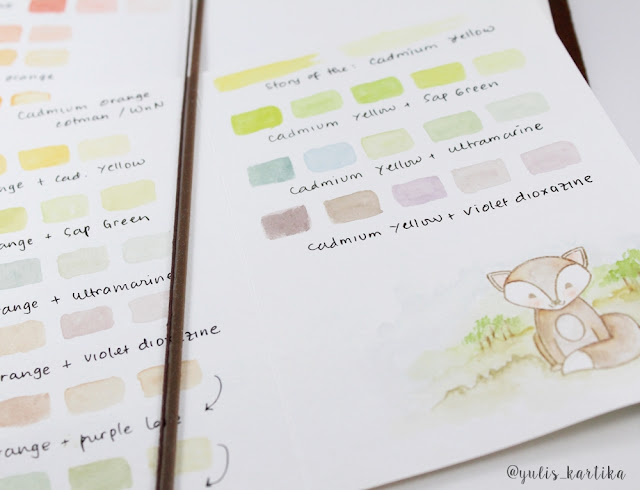 orange
cadmium orange
cotman / WnN
+ cad. yellow
+ Sap Green
+ ultramarine
+ violet dioxazine
+ purple
Story of the: Cadmium Yellow
cadmium yellow + Sap Green
cadmium yellow + ultramarine
cadmium yellow + violet dioxazine
@yulis_kartika